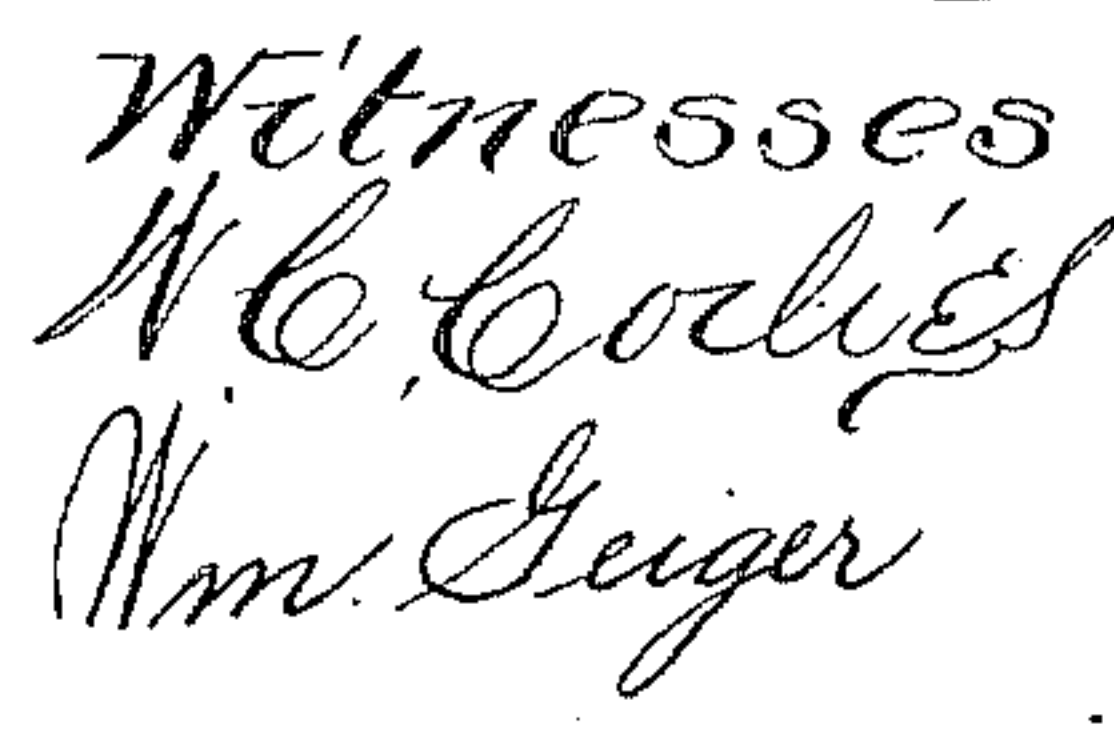 Witnesses
N. C. Corlies
Wm. Geiger